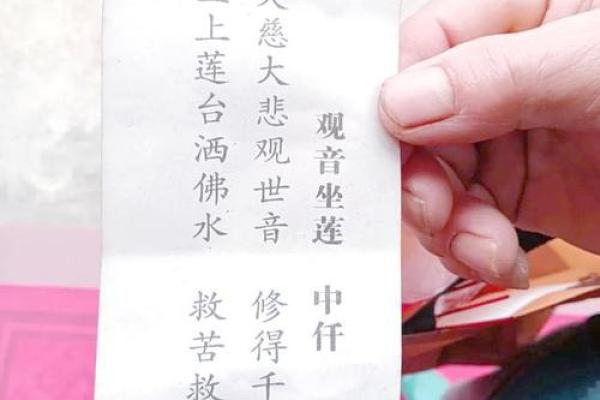 观音坐莲 中仟
慈大悲观世音 修得千
上莲台洒佛水 救苦救